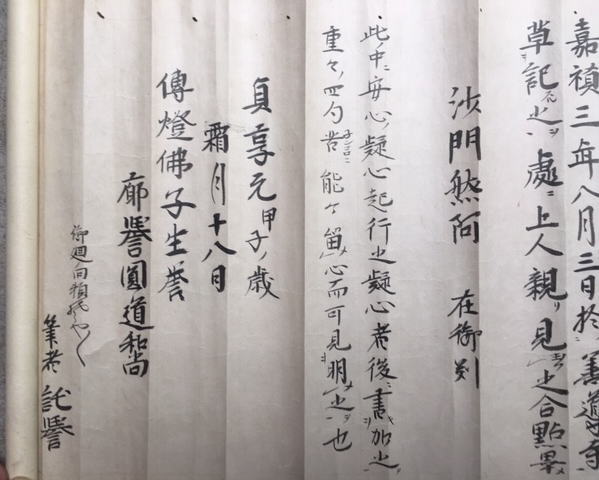 嘉禎三年八月三日於善道寺
草記之處ニ上人親リ見之合點畢
沙門然阿 在御判
此ノ中ニ安心ノ疑心起行之疑心者後ニ書加之
重々ノ四句 能々留心而可見明之也
貞享元甲子ノ歳
霜月十八日
傳燈佛子生誉
廓譽圓道和尚
御廻向頼
筆者 託譽